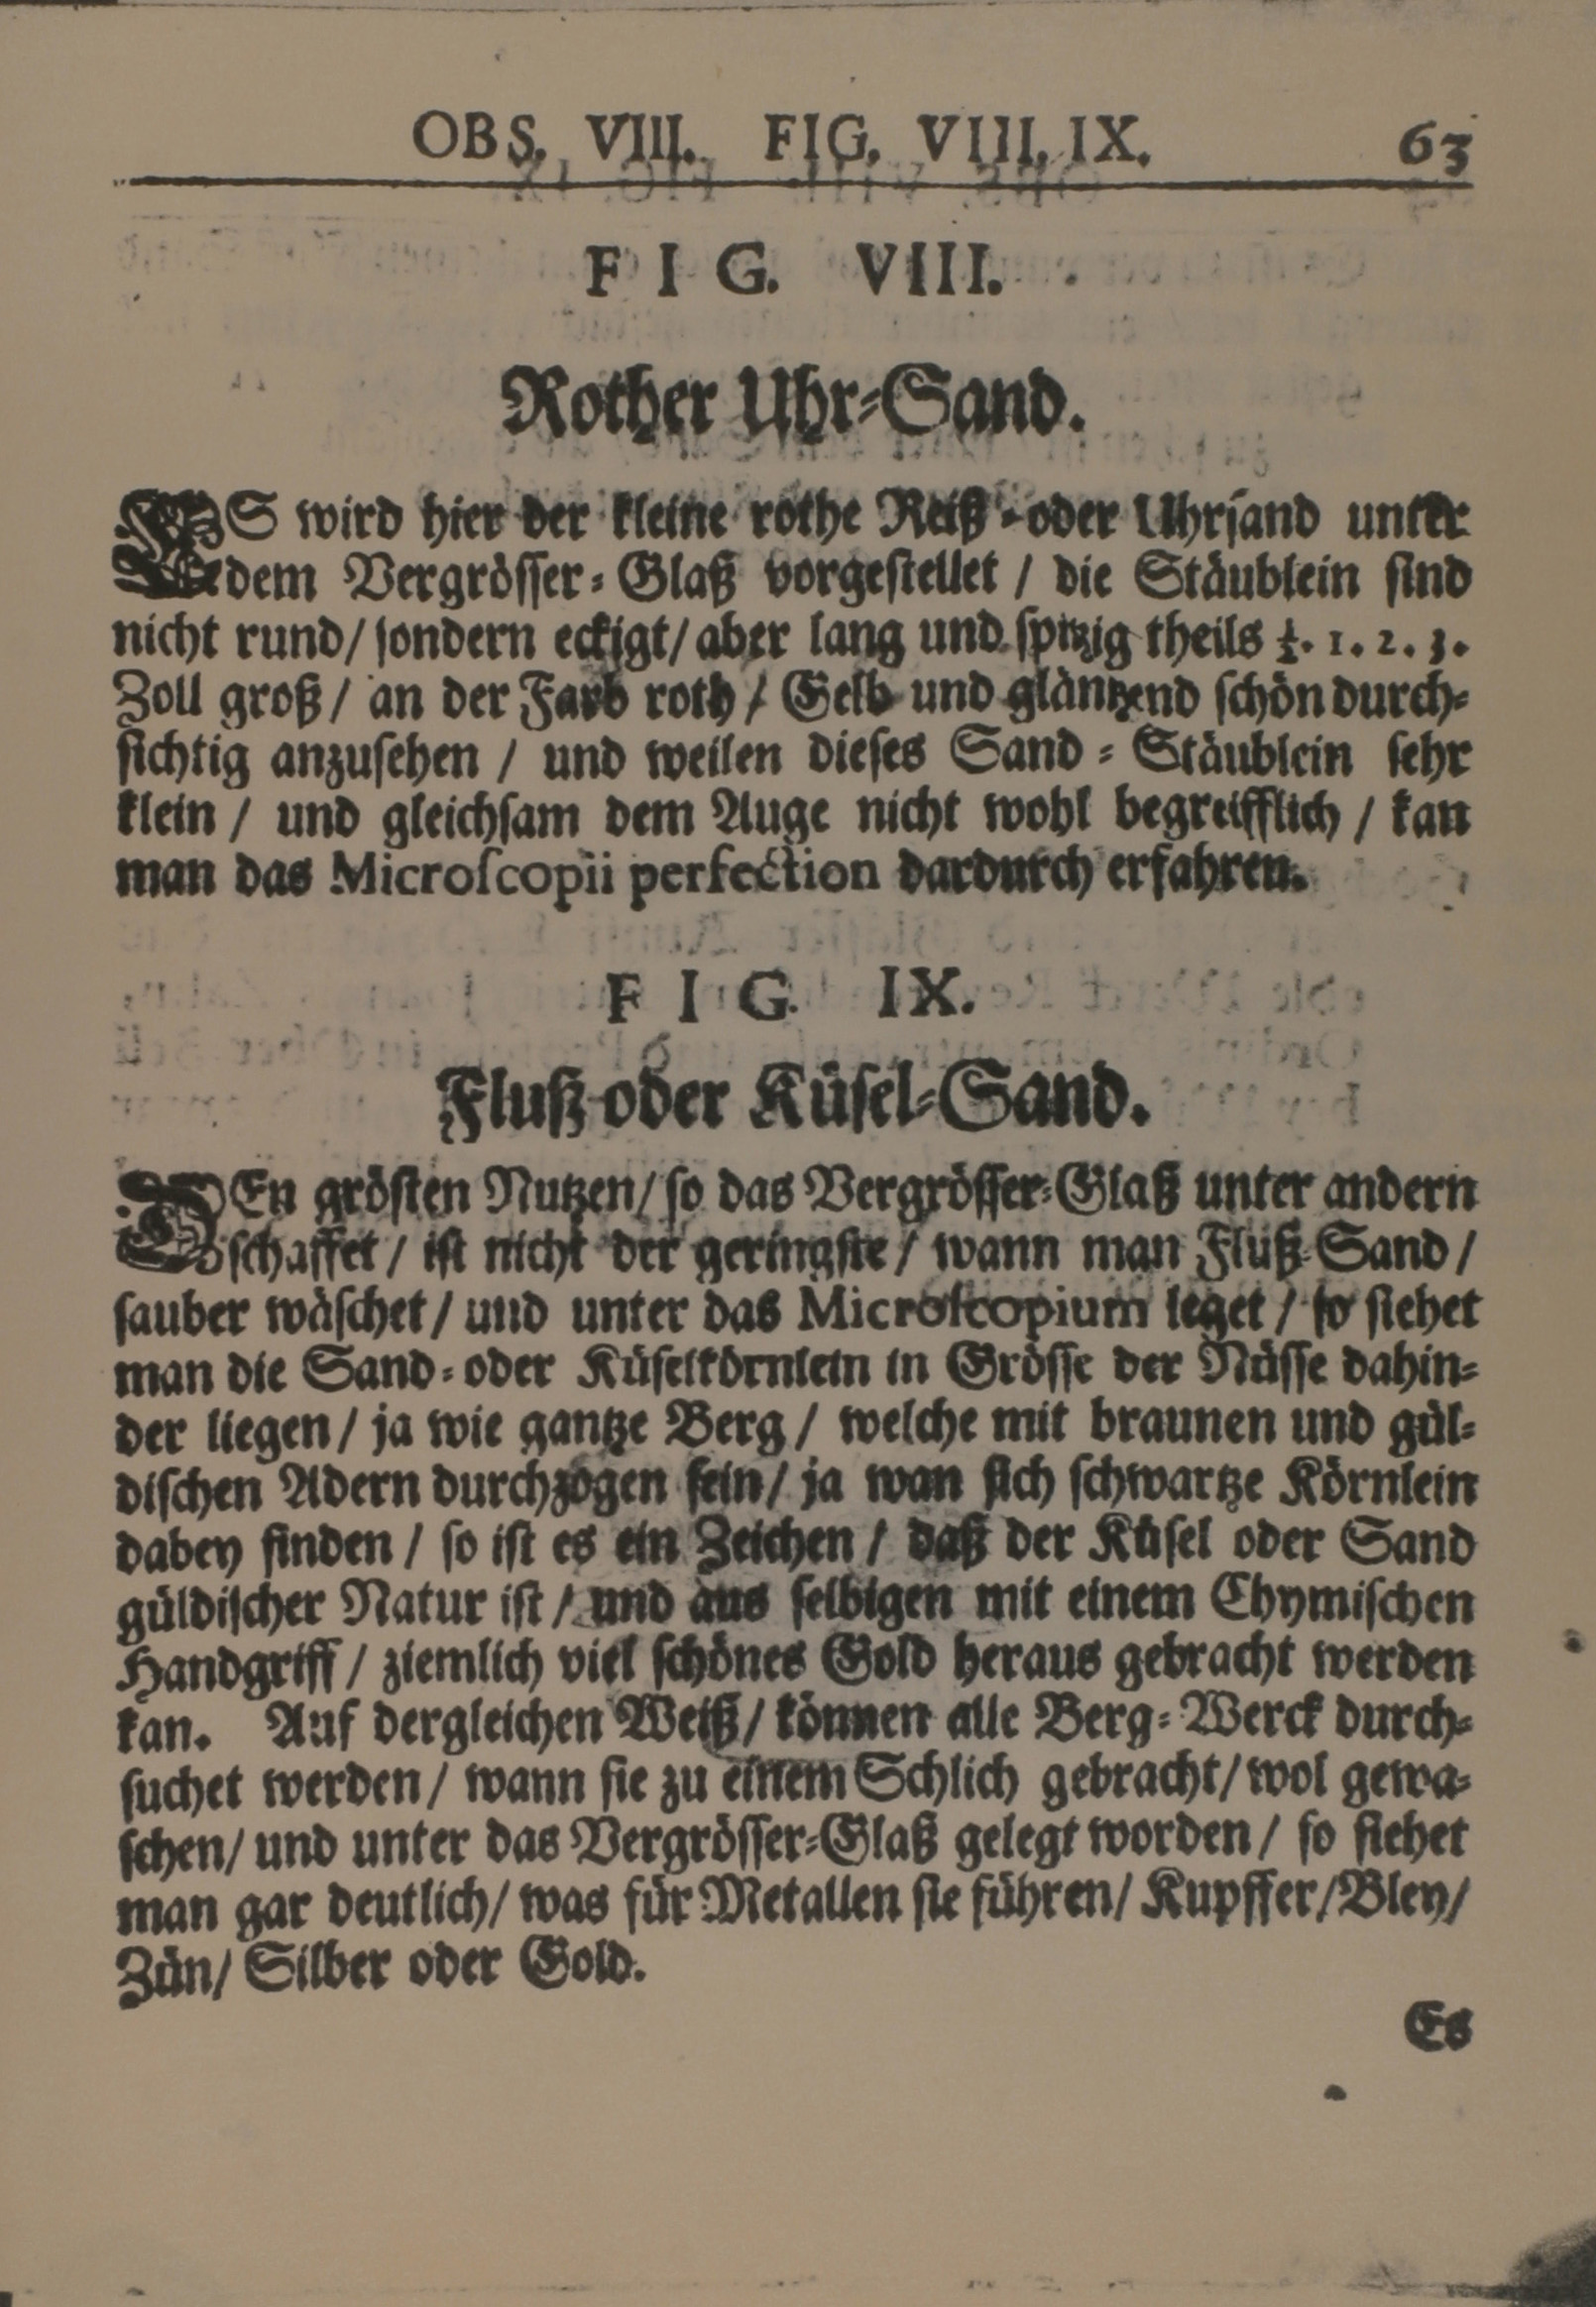 OBS. VIII. FIG. VIII. IX. 63
FIG. VIII.
Rother Uhr-Sand.
ES wird hier der kleine rothe Reiß-oder Uhrsand unter
dem Vergrösser-Glaß vorgestellet / die Stäublein sind
nicht rund/ sondern eckigt/ aber lang und spitzig theils ½. 1. 2. 3.
Zoll groß/ an der Farb roth / Gelb und gläntzend schön durch-
sichtig anzusehen / und weilen dieses Sand-Stäublein sehr
klein / und gleichsam dem Auge nicht wohl begreifflich / kan
man das Microſcopii perfection dardurch erfahren.
FIG. IX.
Fluß-oder Küsel-Sand.
DEn grösten Nutzen/ so das Vergrösser-Glaß unter andern
schaffet / ist nicht der geringste / wann man Fluß-Sand /
sauber wäschet / und unter das Microſcopium leget / so siehet
man die Sand-oder Küselkörnlein in Grösse der Nüsse dahin-
der liegen / ja wie gantze Berg / welche mit braunen und gül-
dischen Adern durchzogen sein/ ja wan sich schwartze Körnlein
dabey finden / so ist es ein Zeichen / daß der Küsel oder Sand
güldischer Natur ist / und aus selbigen mit einem Chymischen
Handgriff / ziemlich viel schönes Gold heraus gebracht werden
kan. Auf dergleichen Weiß/ können alle Berg-Werck durch-
suchet werden / wann sie zu einem Schlich gebracht/ wol gewa-
schen/ und unter das Vergrösser-Glaß gelegt worden / so siehet
man gar deutlich/ was für Metallen sie führen/ Kupffer/Bley/
Zün/ Silber oder Gold.
Es